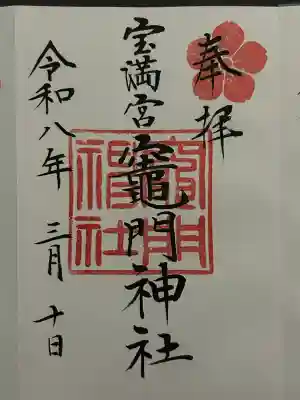 奉拝
宝満宮竈門神社
竈門神社
令和八年 三月 十日